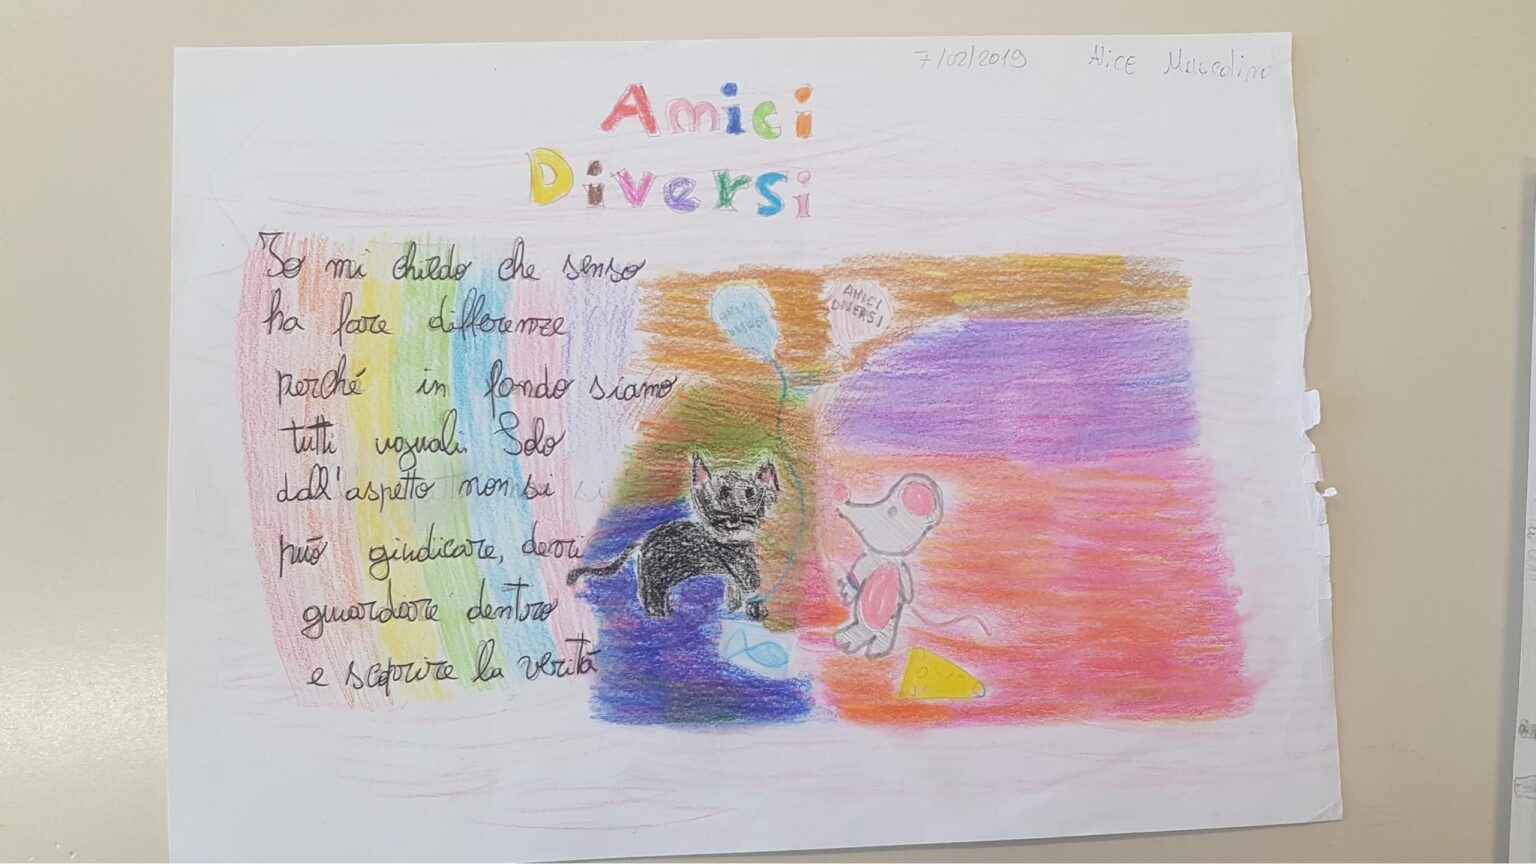 7/02/2019 Alice
Amici
Diversi
Io mi chiedo che senso
ha fare differenze
perché in fondo siamo
tutti uguali. Solo
dall'aspetto non si
può giudicare, devi
guardare dentro
e scoprire la verità
AMICI
DIVERSI